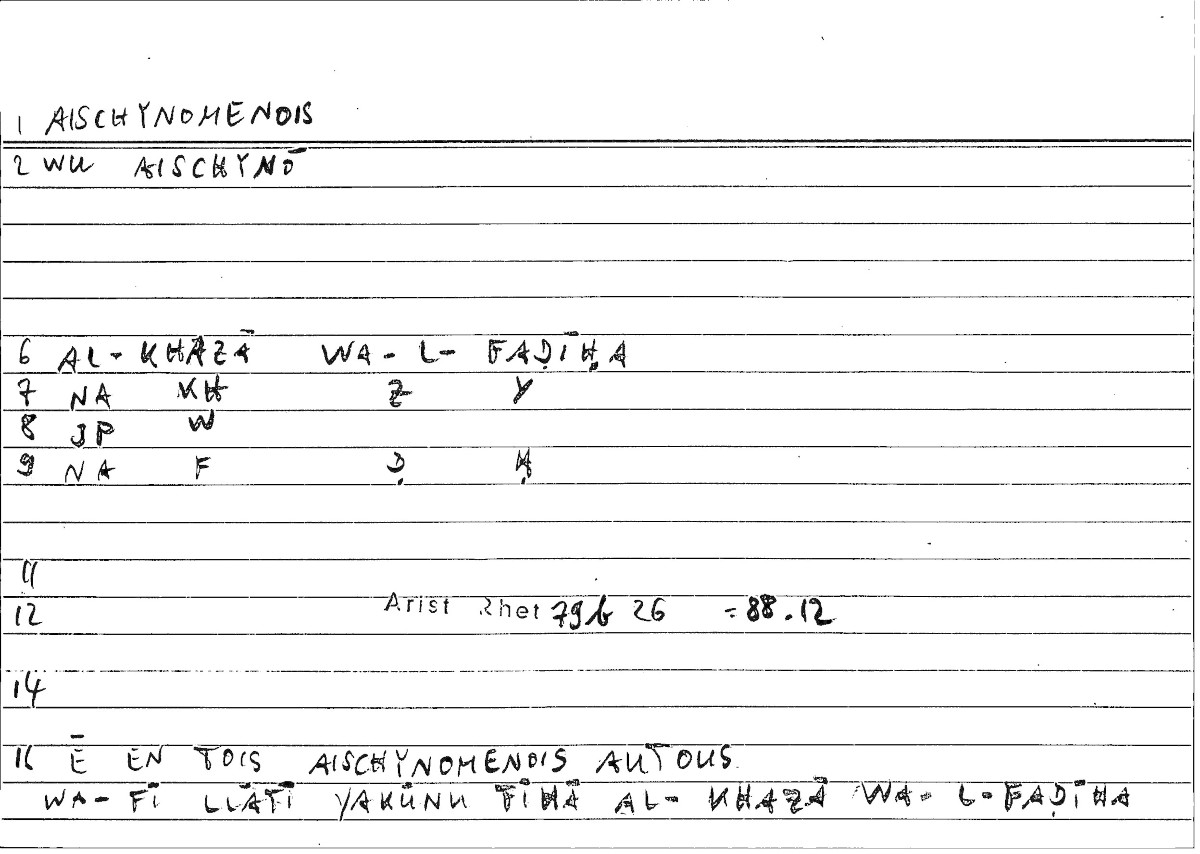 1 AISCHYNOMENOIS
2 WU AISCHYNŌ
6 AL-KHAZĀ WA-L-FAḌĪḤA
7 NA KH Z Y
8 JP W
9 NA F Ḍ Ḥ
11
12 Arist Rhet 79b 26 = 88.12
14
16 Ē EN TOIS AISCHYNOMENOIS AUTOUS
WA-FĪ LLĀTĪ YAKŪNU FĪHĀ AL-KHAZĀ WA-L-FAḌĪHA